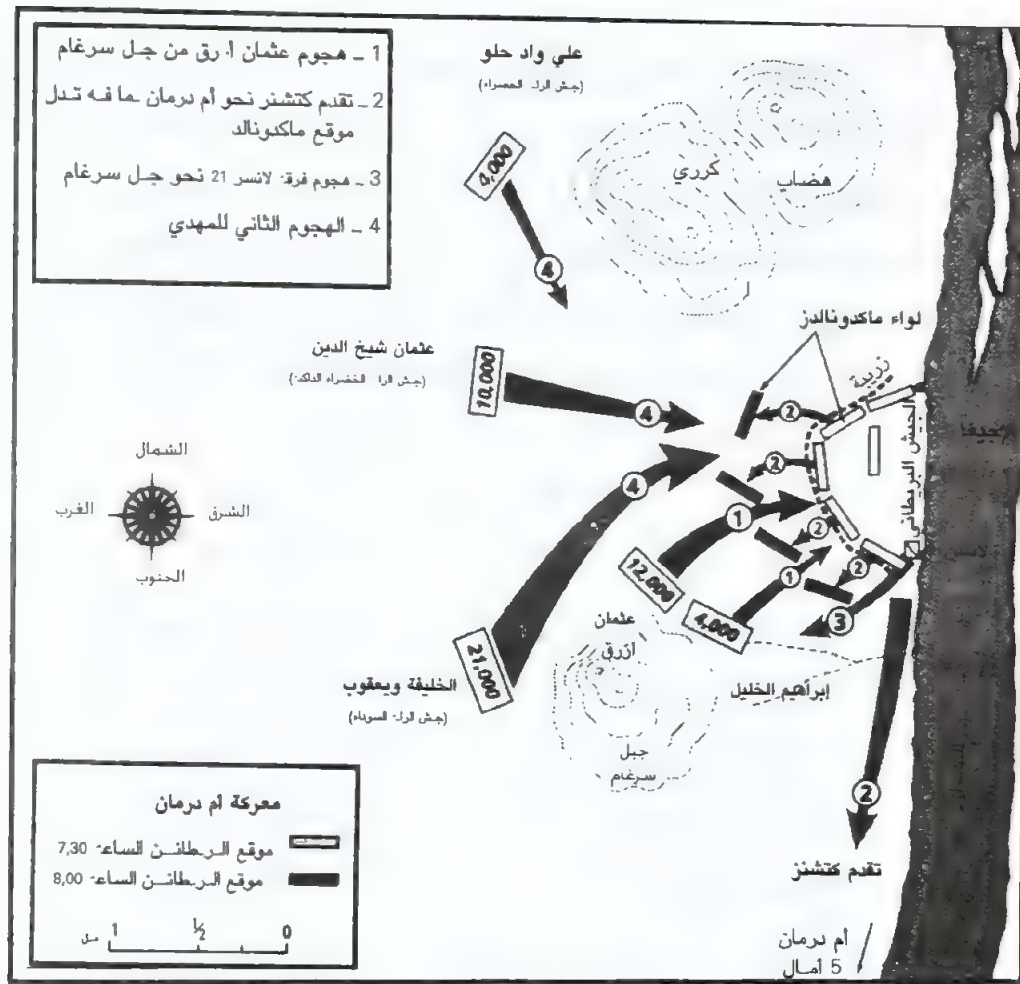 1 – هجوم عثمان أزرق من جبل سرغام
2 – تقدم كتشنر نحو أم درمان بما فيه تبدل
موقع ماكدونالد
3 – هجوم فرقة لانسر 21 نحو جبل سرغام
4 – الهجوم الثاني للمهدي
علي واد حلو
(جيش الراية الخضراء)
0,000
4
كرري
هضاب
لواء ماكدونالدز
زريبة
الجيش البريطاني
عثمان شيخ الدين
(جيش الراية الخضراء الداكنة)
10,000
4
2
2
4
1
2
2
1
3
12,000
4,000
21,000
الشمال
الشرق
الغرب
الجنوب
عثمان
ازرق
إبراهيم الخليل
الخليفة ويعقوب
(جيش الراية السوداء)
جبل
سرغام
2
تقدم كتشنز
أم درمان
5 أميال
معركة أم درمان
موقع البريطانيين الساعة 7,30
موقع البريطانيين الساعة 8,00
1 ½ 0
ميل